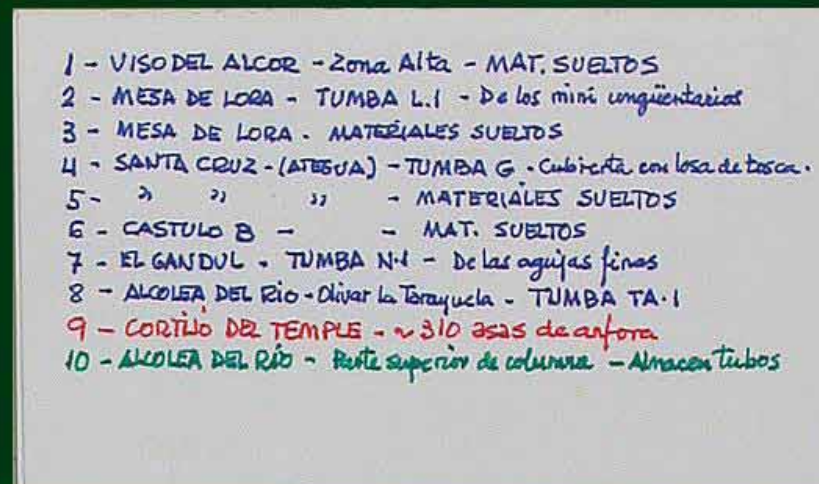 1 - VISO DEL ALCOR - Zona Alta - MAT. SUELTOS
2 - MESA DE LORA - TUMBA L.1 - De los mini ungüentarios
3 - MESA DE LORA - MATERIALES SUELTOS
4 - SANTA CRUZ - (ATEGUA) - TUMBA G - Cubierta con losa de tosca.
5 - " " " - MATERIALES SUELTOS
6 - CASTULO B - - MAT. SUELTOS
7 - EL GANDUL - TUMBA N-1 - De las agujas finas
8 - ALCOLEA DEL RIO - Olivar la Tarayuela - TUMBA TA-1
9 - CORTIJO DEL TEMPLE - ~ 310 asas de anfora
10 - ALCOLEA DEL RÍO - Parte superior de columna - Almacen tubos